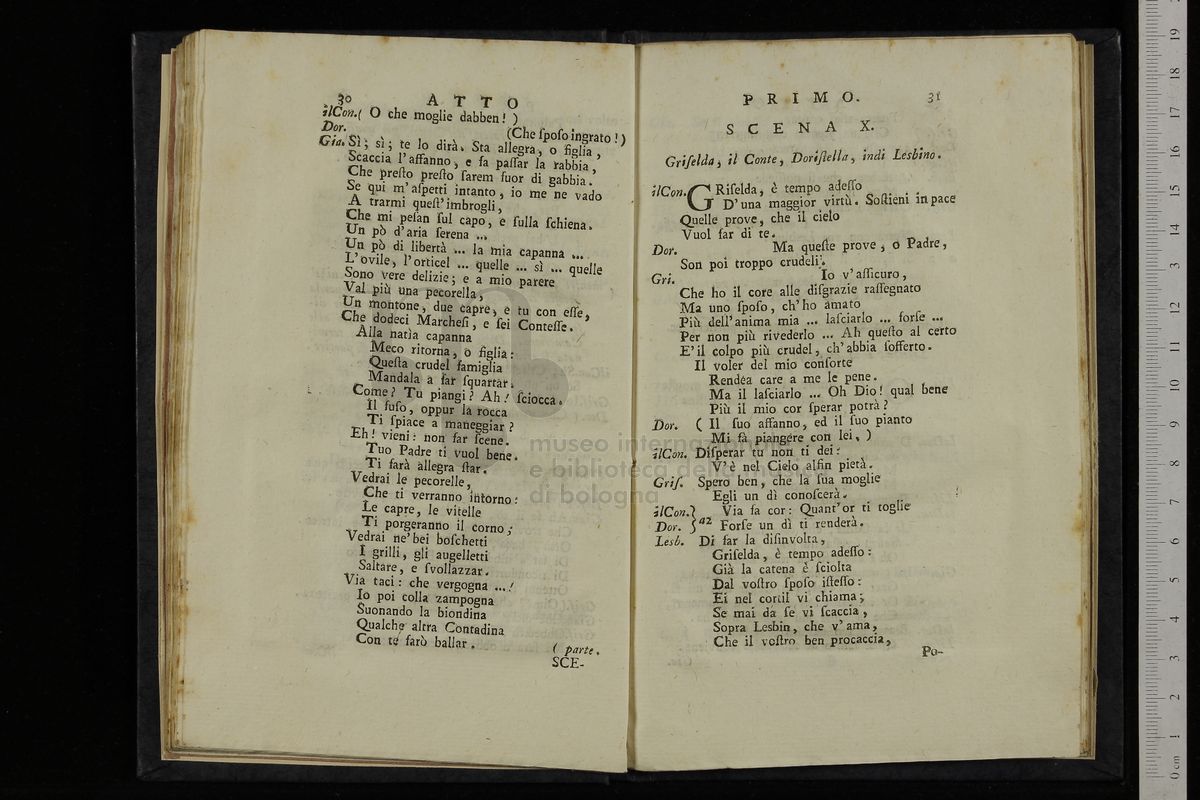 30 ATTO
ilCon. ( O che moglie dabben! )
Dor. (Che ſpoſo ingrato!)
Gia. Sì; sì; te lo dirà. Sta allegra, o figlia,
Scaccia l'affanno, e fa paſſar la rabbia,
Che preſto preſto ſarem fuor di gabbia.
Se qui m'aſpetti intanto, io me ne vado
A trarmi queſt'imbrogli,
Che mi peſan ſul capo, e ſulla ſchiena.
Un pò d'aria ſerena ...
Un pò di libertà ... la mia capanna ...
L'ovile, l'orticel ... quelle ... sì ... quelle
Sono vere delizie; e a mio parere
Val più una pecorella,
Un montone, due capre, e tu con eſſe,
Che dodeci Marcheſi, e ſei Conteſſe.
Alla natìa capanna
Meco ritorna, o figlia:
Queſta crudel famiglia
Mandala a far ſquartar.
Come? Tu piangi? Ah! ſciocca.
Il fuſo, oppur la rocca
Ti ſpiace a maneggiar?
Eh! vieni: non far ſcene.
Tuo Padre ti vuol bene.
Ti farà allegra ſtar.
Vedrai le pecorelle,
Che ti verranno intorno:
Le capre, le vitelle
Ti porgeranno il corno;
Vedrai ne'bei boſchetti
I grilli, gli augelletti
Saltare, e ſvollazzar.
Via taci: che vergogna ...!
Io poi colla zampogna
Suonando la biondina
Qualche altra Contadina
Con te farò ballar.
( parte.
SCE-
PRIMO. 31
SCENA X.
Griſelda, il Conte, Doriſtella, indi Lesbino.
ilCon. GRiſelda, è tempo adeſſo
D'una maggior virtù. Soſtieni in pace
Quelle prove, che il cielo
Vuol far di te.
Dor. Ma queſte prove, o Padre,
Son poi troppo crudeli.
Gri. Io v'aſſicuro,
Che ho il core alle diſgrazie raſſegnato
Ma uno ſpoſo, ch'ho amato
Più dell'anima mia ... laſciarlo ... forſe ...
Per non più rivederlo ... Ah queſto al certo
E'il colpo più crudel, ch'abbia ſofferto.
Il voler del mio conſorte
Rendéa care a me le pene.
Ma il laſciarlo ... Oh Dio! qual bene
Più il mio cor ſperar potrà?
Dor. ( Il ſuo affanno, ed il ſuo pianto
Mi fà piangere con lei. )
ilCon. Diſperar tu non ti dei:
V'è nel Cielo alfin pietà.
Griſ. Spero ben, che la ſua moglie
Egli un dì conoſcerà.
ilCon. } Via fa cor: Quant'or ti toglie
Dor. } a2 Forſe un dì ti renderà.
Lesb. Di far la diſinvolta,
Griſelda, è tempo adeſſo:
Già la catena è ſciolta
Dal voſtro ſpoſo iſteſſo:
Ei nel cortil vi chiama;
Se mai da ſe vi ſcaccia,
Sopra Lesbin, che v'ama,
Che il voſtro ben procaccia,
Po-
museo internazionale
e biblioteca della musica
di bologna